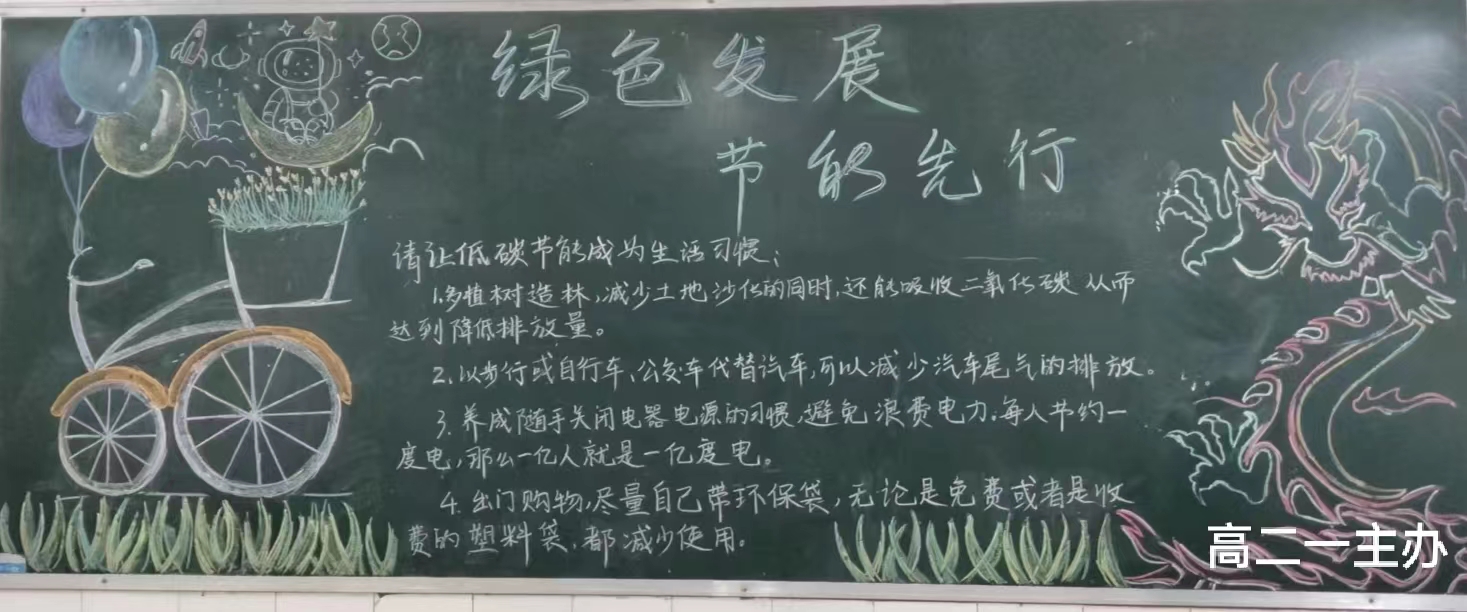 绿色发展
节能先行
请让低碳节能成为生活习惯:
1.多植树造林,减少土地沙化的同时,还能吸收二氧化碳从而
达到降低排放量。
2.以步行或自行车、公交车代替汽车,可以减少汽车尾气的排放。
3.养成随手关闭电器电源的习惯,避免浪费电力.每人节约一
度电,那么一亿人就是一亿度电。
4.出门购物,尽量自己带环保袋,无论是免费或者是收
费的塑料袋,都减少使用。
高二一主办